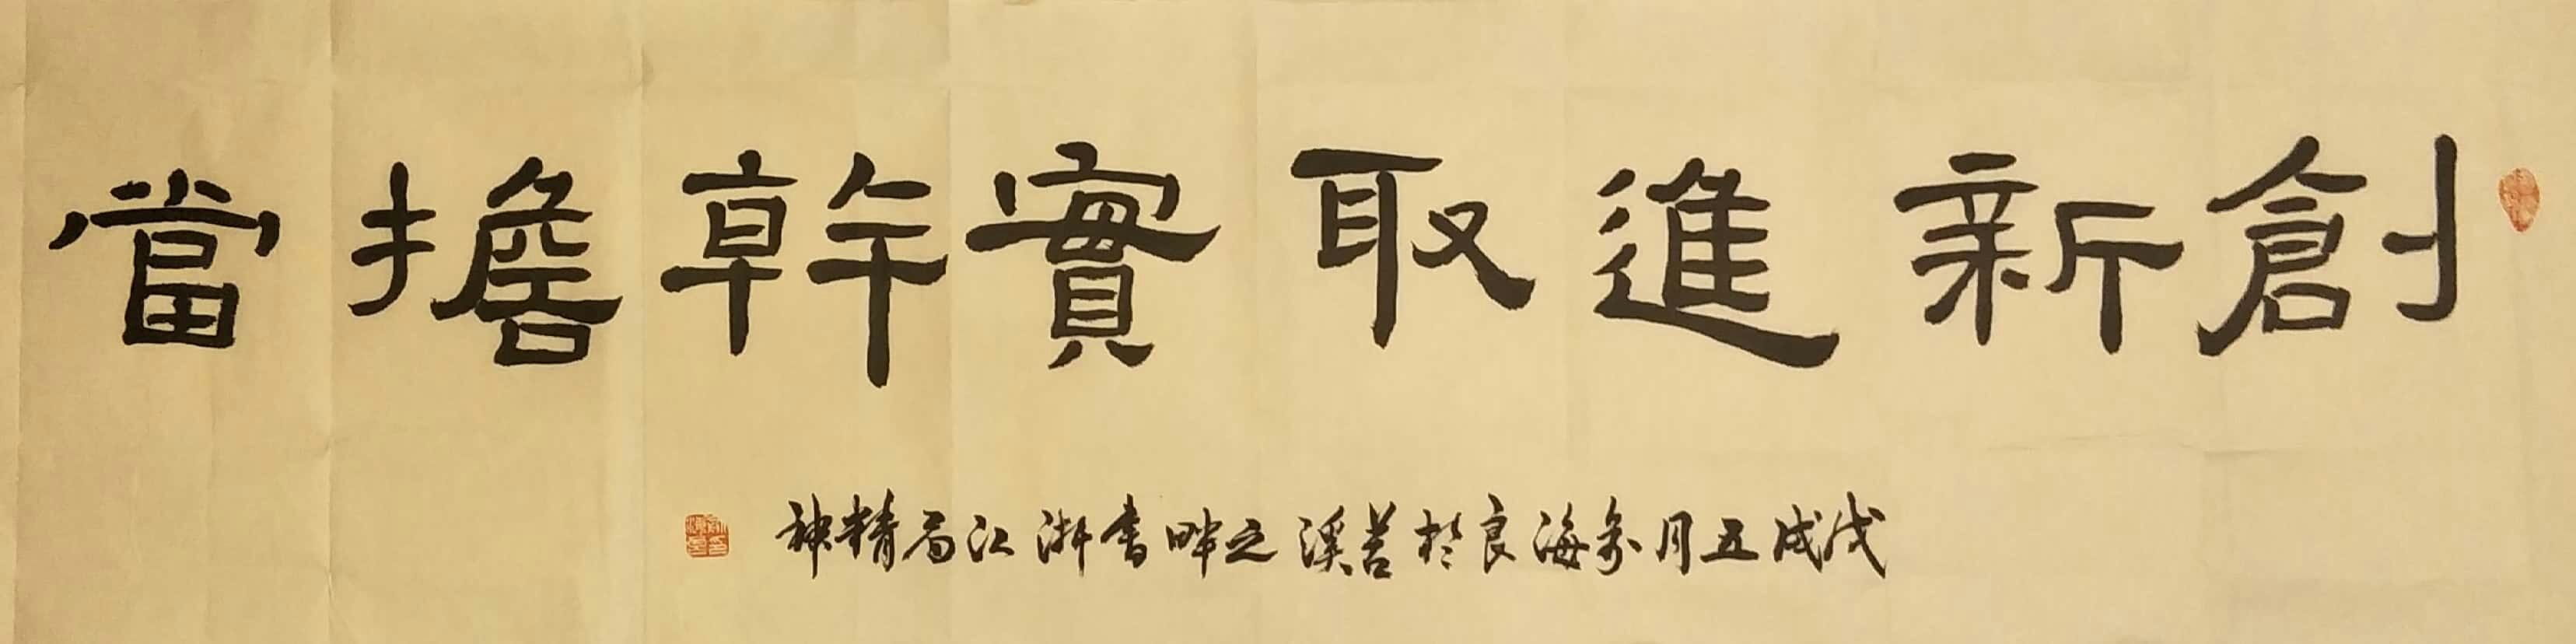 創新進取實幹擔當
戊戌五月海良於苕溪之畔書浙江精神